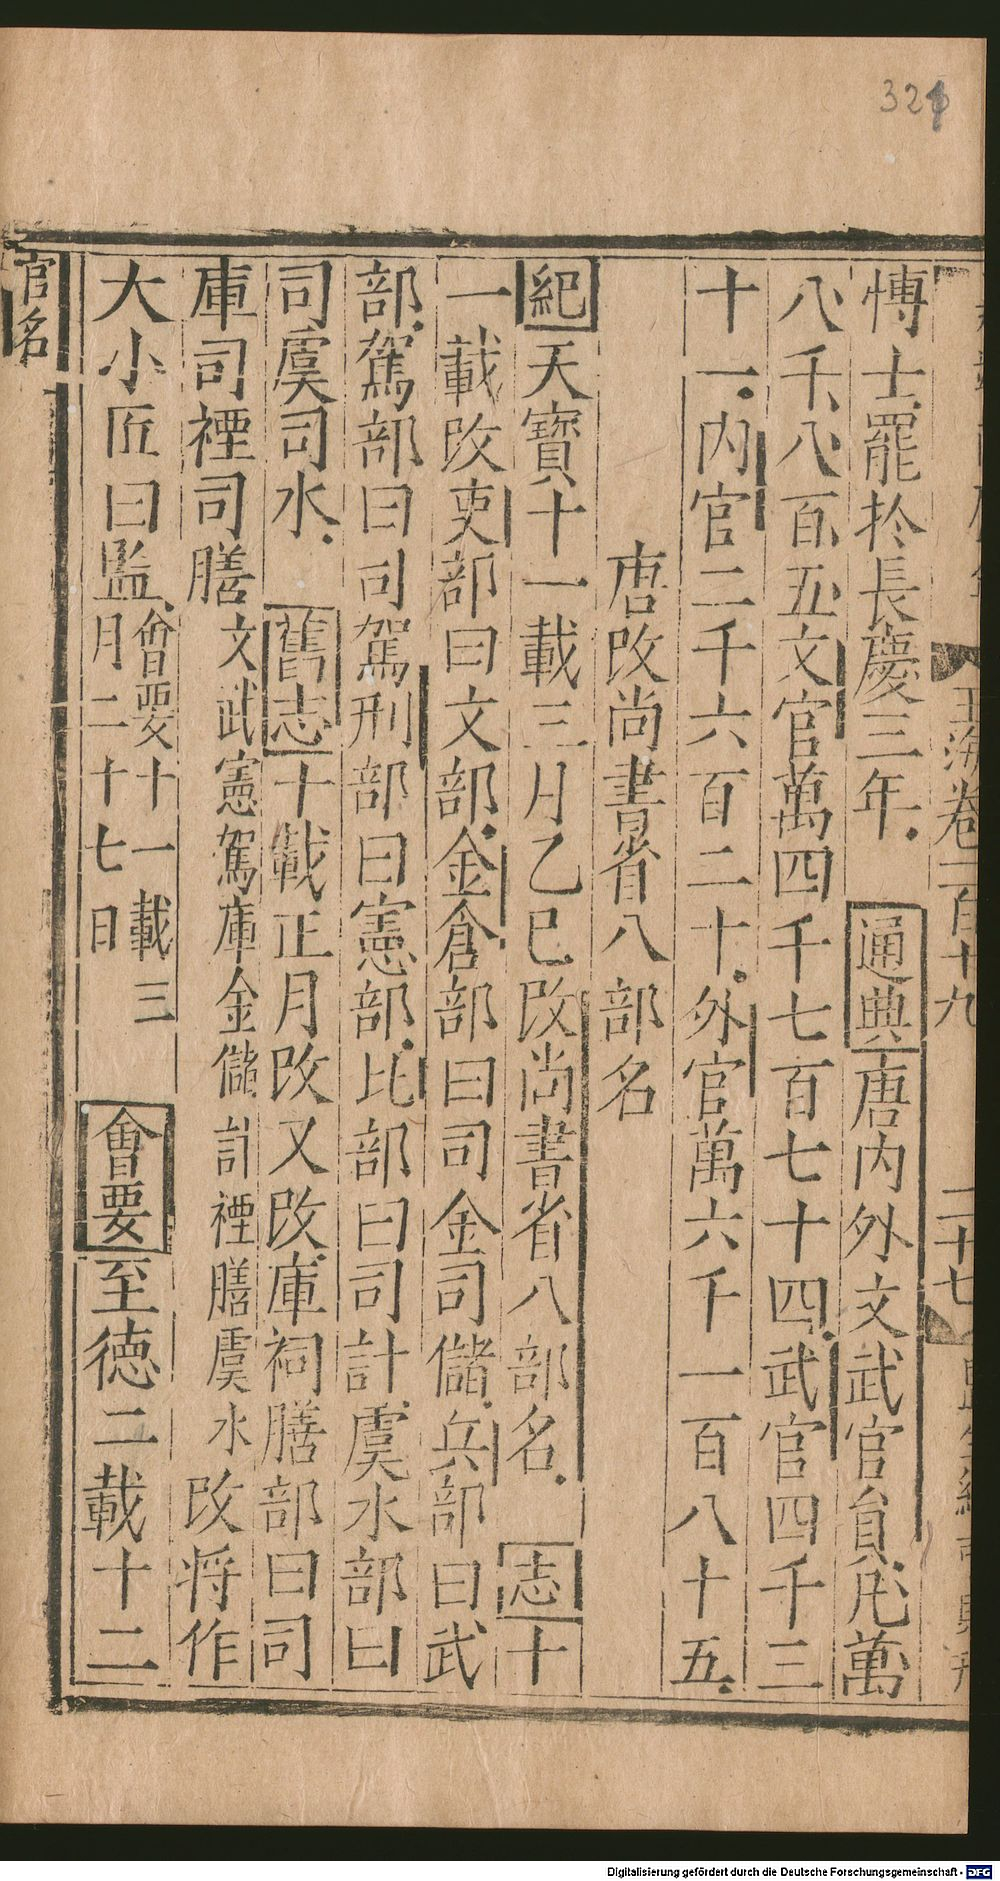 玉海卷一百十九
二十七
博士罷於長慶三年 通典唐内外文武官員凡萬
八千八百五文官萬四千七百七十四武官四千三
十一内官二千六百二十外官萬六千一百八十五
唐改尚書省八部名
紀天寶十一載三月乙巳改尚書省八部名 志十
一載改吏部曰文部金倉部曰司金司儲兵部曰武
部駕部曰司駕刑部曰憲部比部曰司計虞水部曰
司虞司水 舊志十載正月改又改庫祠膳部曰司
庫司禋司膳文武憲駕庫金儲計禋膳虞水改将作
大小匠曰監會要十一載三
月二十七日 會要至德二載十二
官名
321
Digitalisierung gefördert durch die Deutsche Forschungsgemeinschaft - DFG